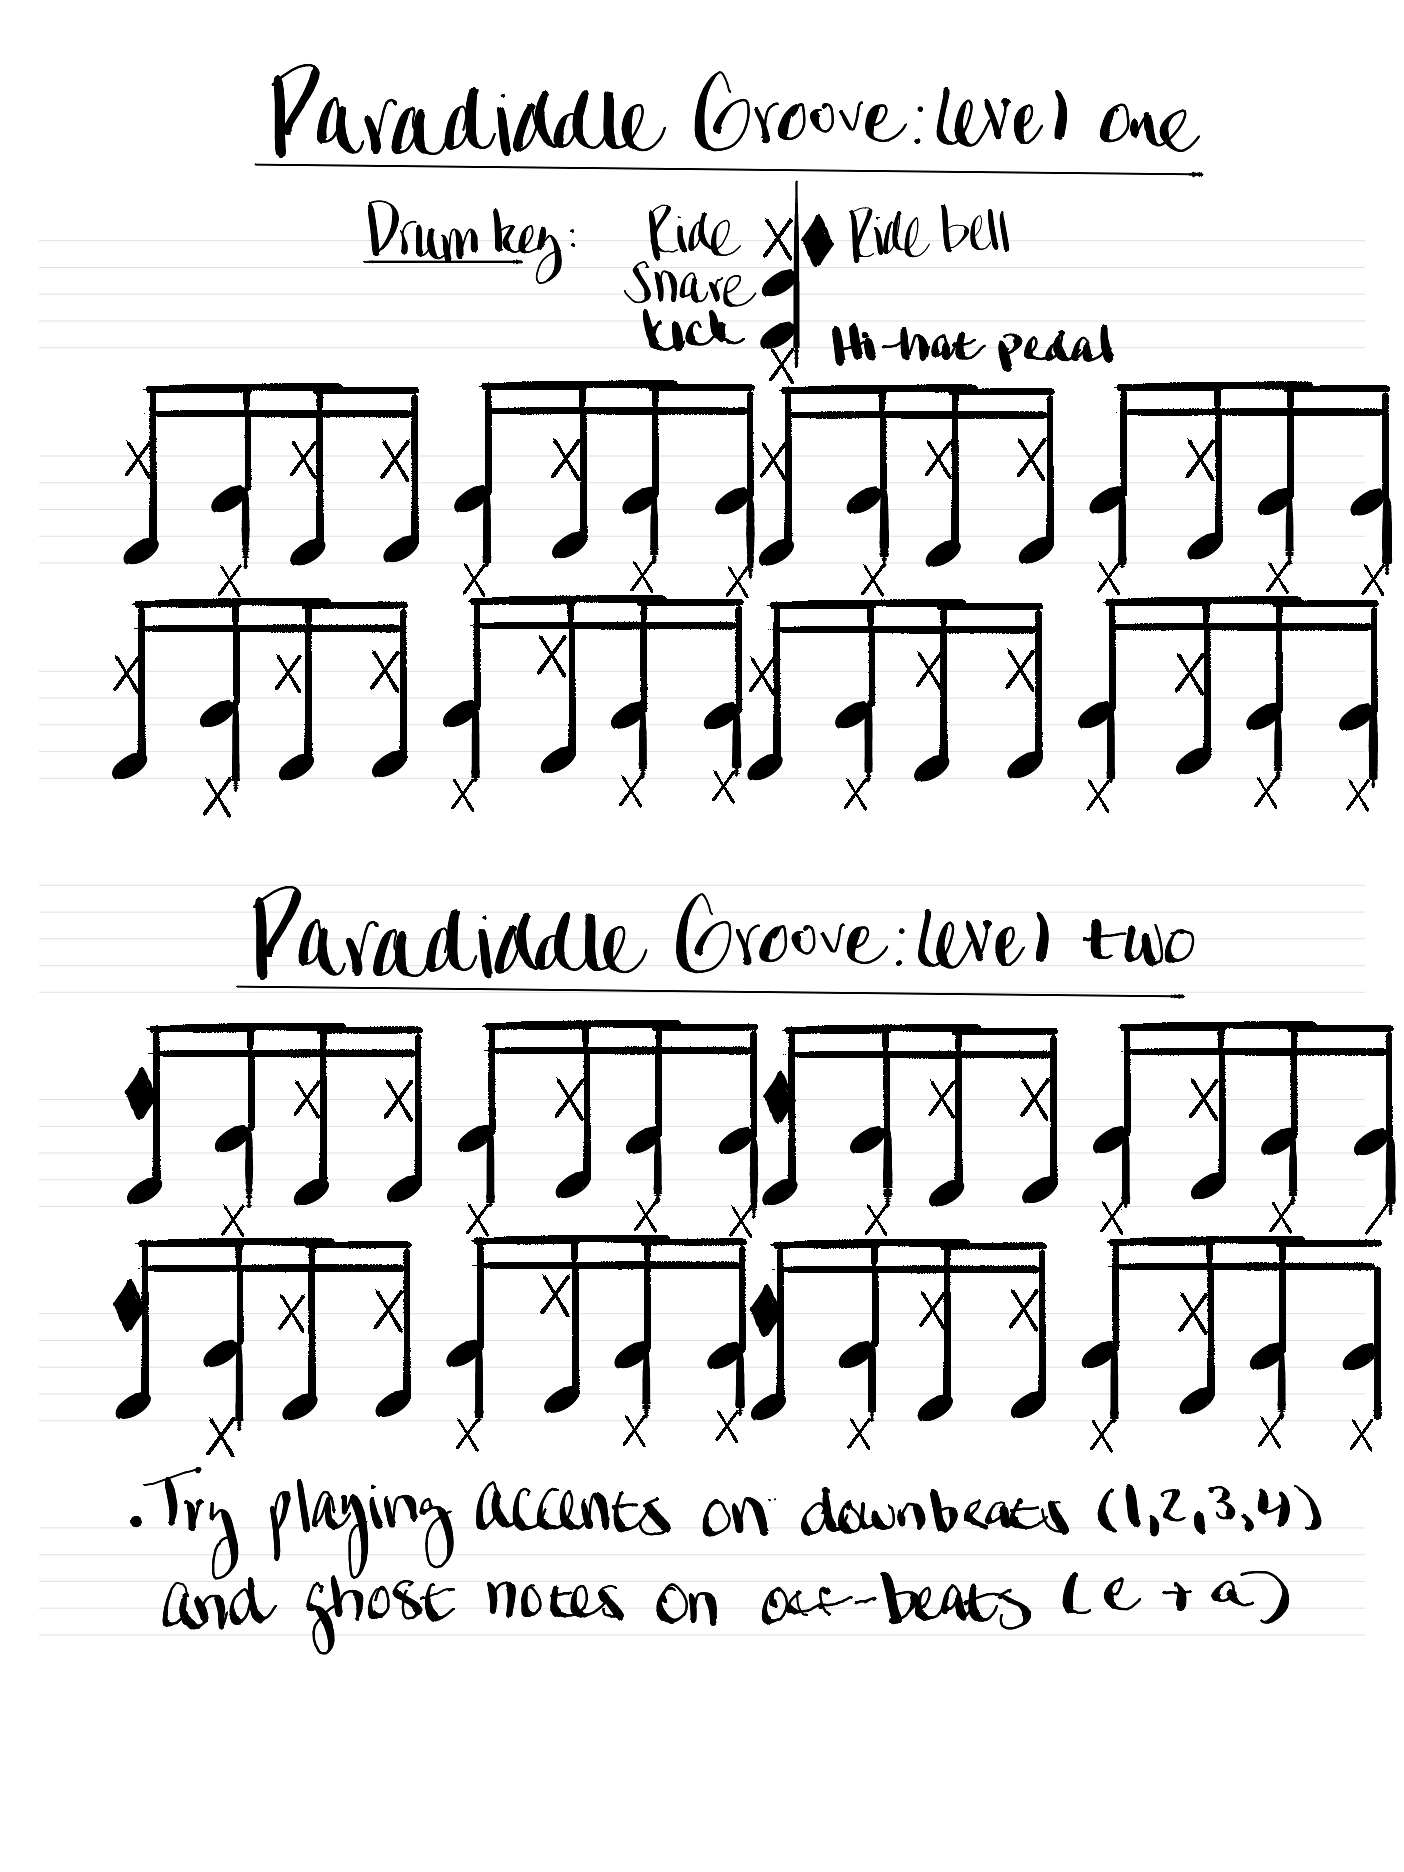 Paradiddle Groove: level one
Drum key: Ride Ride bell
Snare
kick Hi-hat pedal
Paradiddle Groove: level two
. Try playing accents on downbeats (1,2,3,4)
and ghost notes on off-beats (e + a)